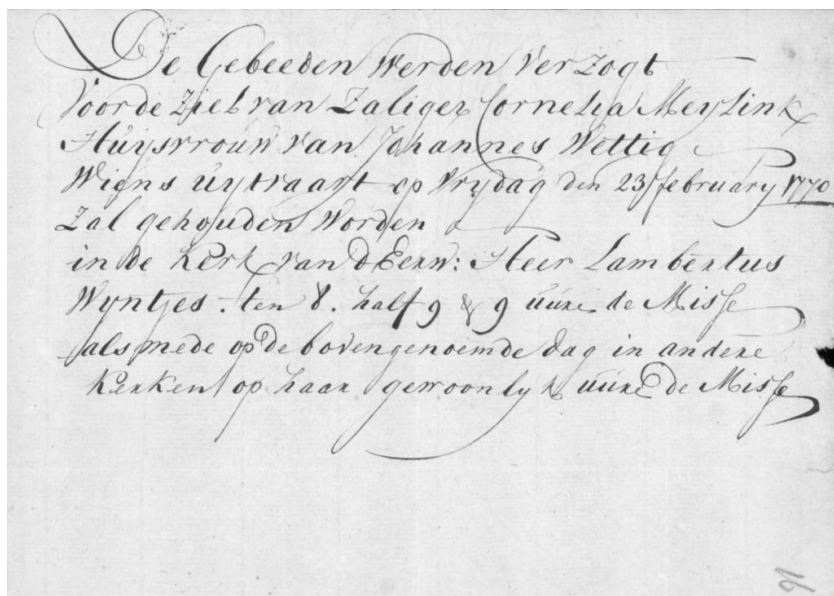 De Gebeeden werden verzogt
voor de ziel van Zaliger Cornelia Meylink
Huysvrouw van Johannes Wettig
Wiens uytvaart op Vrydag den 23 february 1770
Zal gehouden worden
in de Kerk van d Eerw: Heer Lambertus
Wyntjes. ten 8. half 9 & 9 uure de Misse
als mede op de bovengenoemde dag in andere
Kerken op haar gewoonlyk uure de Misse
16